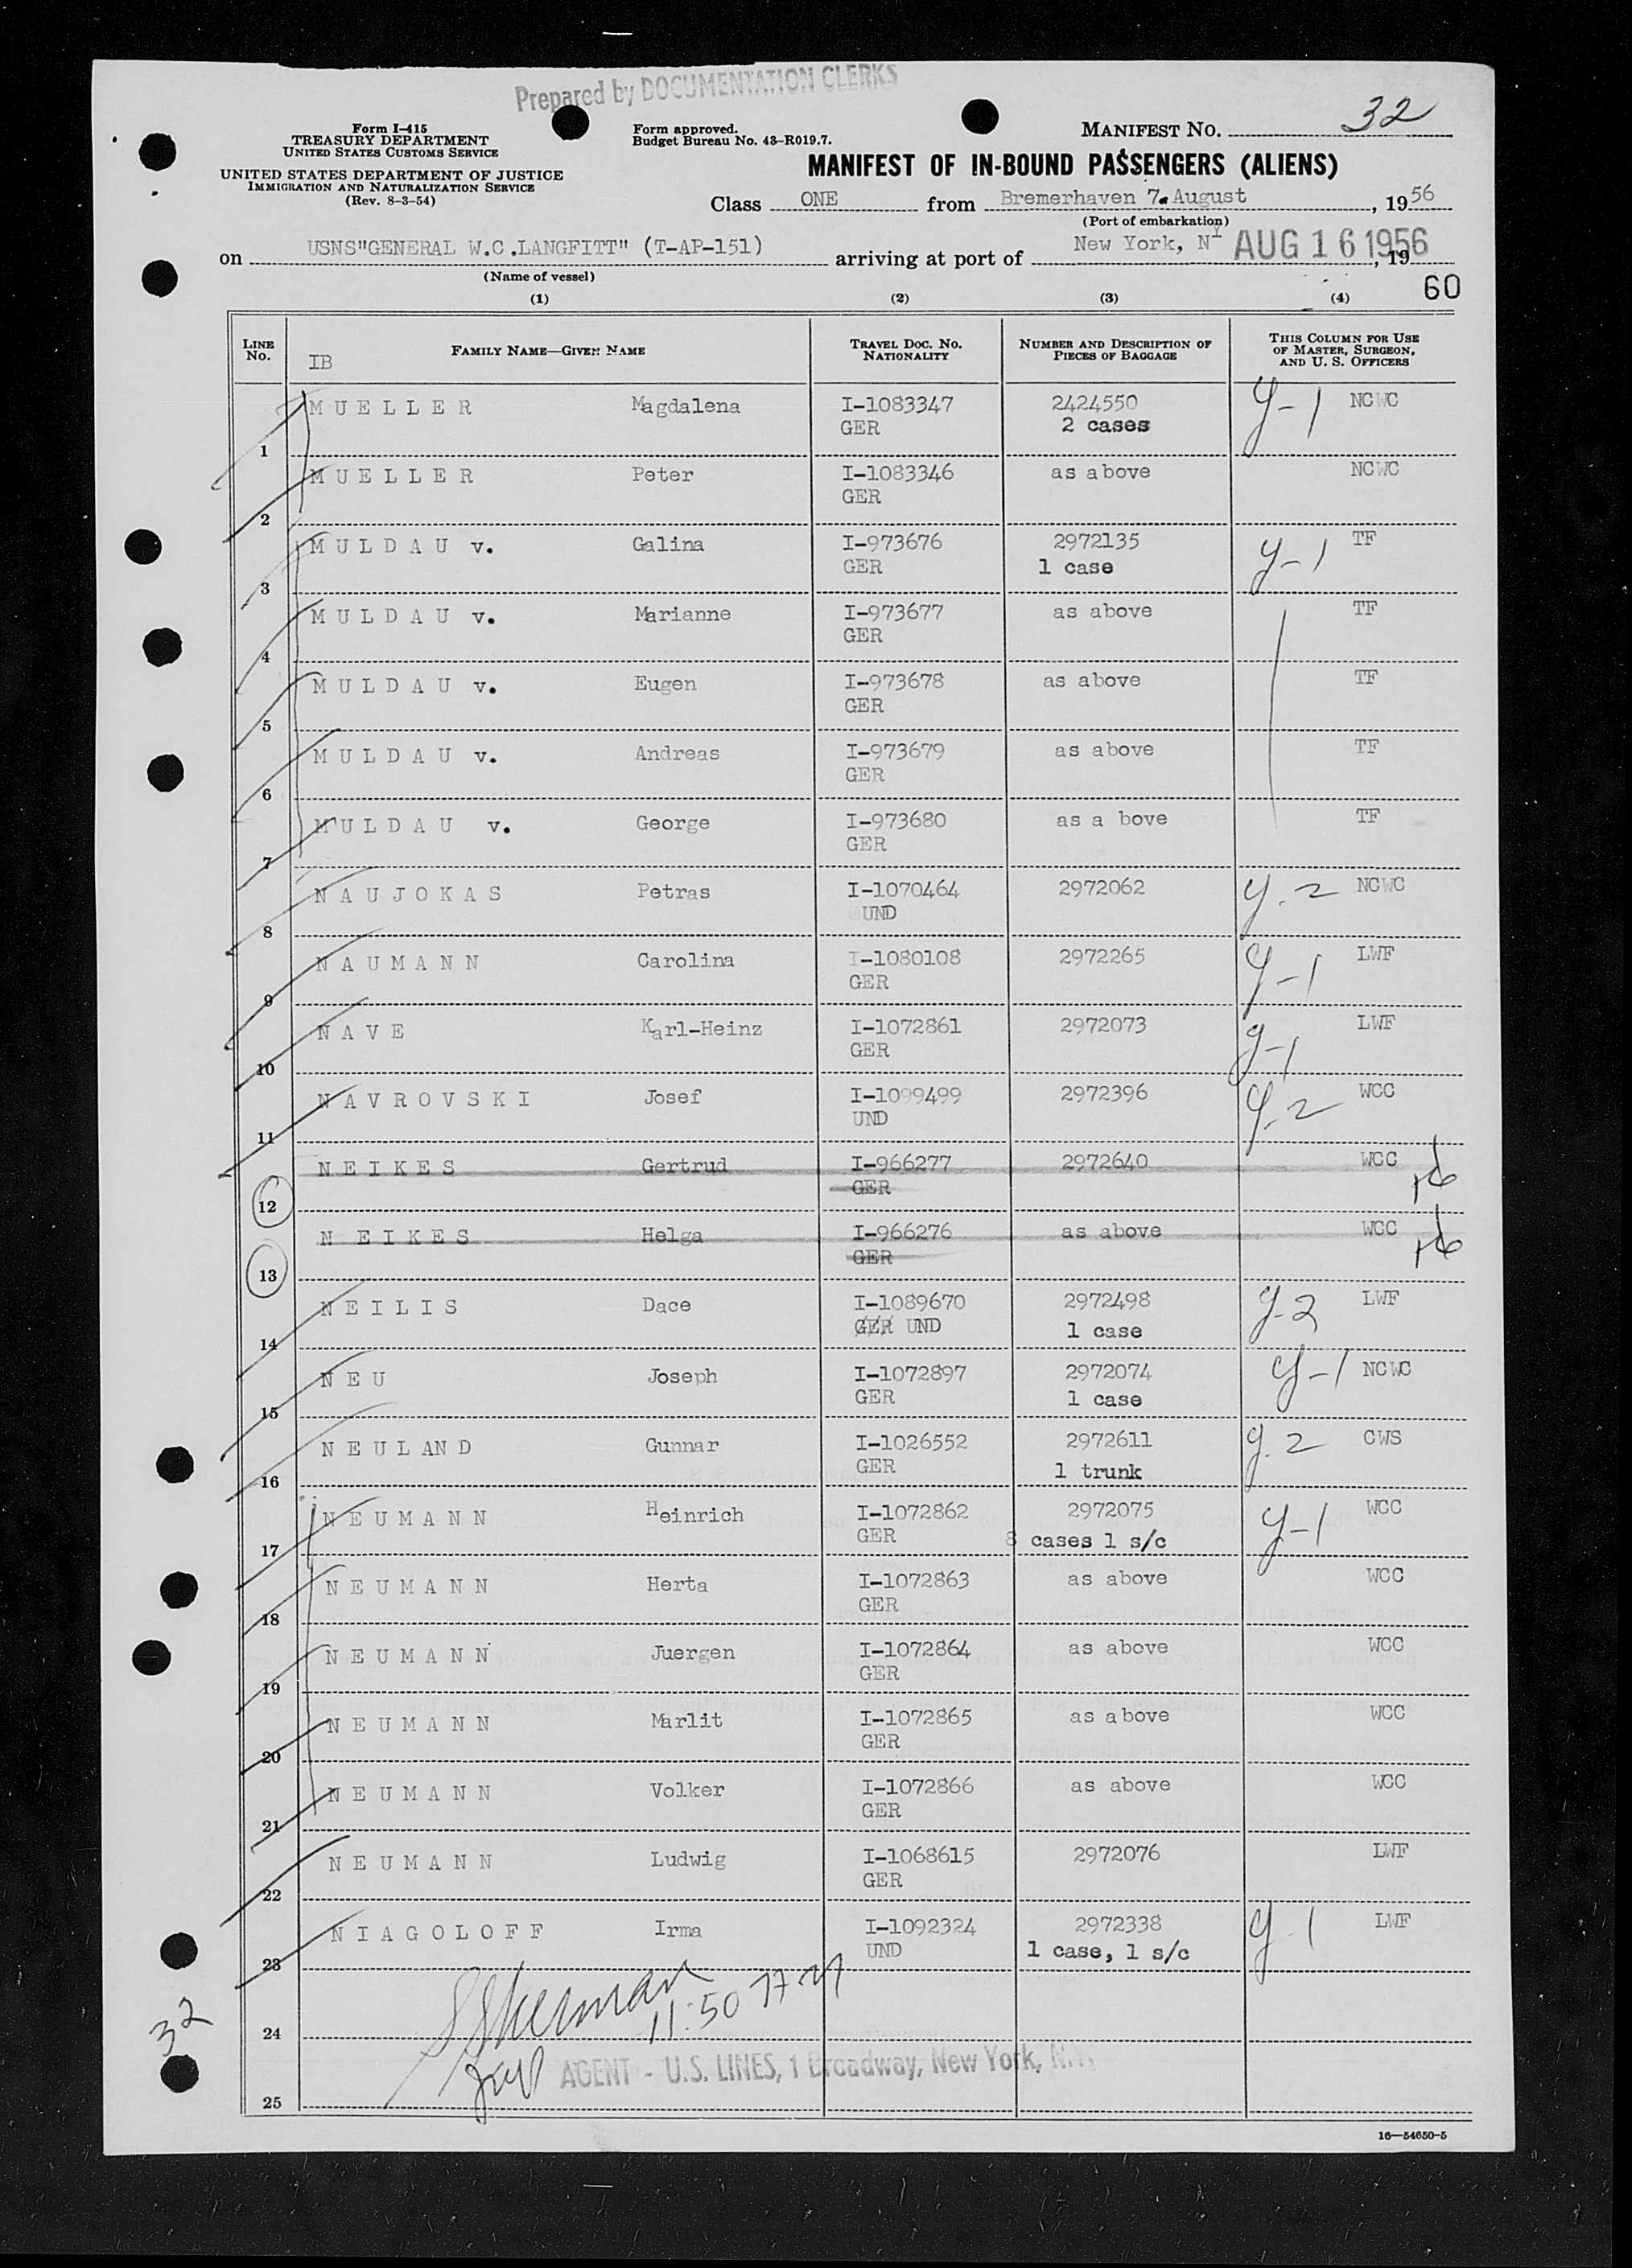 Prepared by DOCUMENTATION CLERKS
Form I-415
TREASURY DEPARTMENT
UNITED STATES CUSTOMS SERVICE
UNITED STATES DEPARTMENT OF JUSTICE
IMMIGRATION AND NATURALIZATION SERVICE
(Rev. 8-3-54)
Form approved.
Budget Bureau No. 43-R019.7.
MANIFEST NO. 32
MANIFEST OF IN-BOUND PASSENGERS (ALIENS)
Class ONE from Bremerhaven 7. August, 1956
(Port of embarkation)
on USNS"GENERAL W.C.LANGFITT" (T-AP-151) arriving at port of New York, NY AUG 16 1956, 19
(Name of vessel)
60
(1) (2) (3) (4)
LINE No. IB FAMILY NAME—GIVEN NAME TRAVEL DOC. NO. NATIONALITY NUMBER AND DESCRIPTION OF PIECES OF BAGGAGE THIS COLUMN FOR USE OF MASTER, SURGEON, AND U. S. OFFICERS
M U E L L E R Magdalena I-1083347 2424550 Y-1 NCWC
1 GER 2 cases
M U E L L E R Peter I-1083346 as above NCWC
2 GER
M U L D A U v. Galina I-973676 2972135 Y-1 TF
3 GER 1 case
M U L D A U v. Marianne I-973677 as above TF
4 GER
M U L D A U v. Eugen I-973678 as above TF
5 GER
M U L D A U v. Andreas I-973679 as above TF
6 GER
M U L D A U v. George I-973680 as a bove TF
7 GER
N A U J O K A S Petras I-1070464 2972062 Y.2 NCWC
8 UND
N A U M A N N Carolina I-1080108 2972265 Y-1 LWF
9 GER
N A V E Karl-Heinz I-1072861 2972073 Y-1 LWF
10 GER
N A V R O V S K I Josef I-1099499 2972396 Y.2 WCC
11 UND
N E I K E S Gertrud I-966277 2972640 WCC
12 GER
N E I K E S Helga I-966276 as above WCC
13 GER
N E I L I S Dace I-1089670 2972498 Y-2 LWF
14 GER UND 1 case
N E U Joseph I-1072897 2972074 Y-1 NCWC
15 GER 1 case
N E U L AN D Gunnar I-1026552 2972611 Y.2 CWS
16 GER 1 trunk
N E U M A N N Heinrich I-1072862 2972075 Y-1 WCC
17 GER 8 cases 1 s/c
N E U M A N N Herta I-1072863 as above WCC
18 GER
N E U M A N N Juergen I-1072864 as above WCC
19 GER
N E U M A N N Marlit I-1072865 as above WCC
20 GER
N E U M A N N Volker I-1072866 as above WCC
21 GER
N E U M A N N Ludwig I-1068615 2972076 LWF
22 GER
N I A G O L O F F Irma I-1092324 2972338 Y-1 LWF
23 UND 1 case, 1 s/c
11:50
32
24
AGENT - U.S. LINES, 1 Broadway, New York, N.Y.
25
16—54650-5